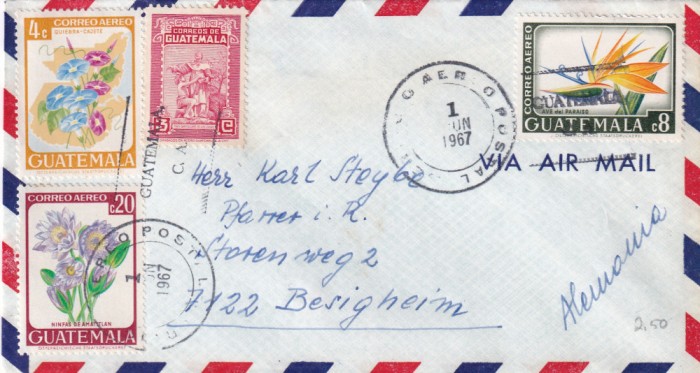 CORREO AEREO
QUIEBRA-CAJETE
4c
GUATEMALA
CORREOS DE
GUATEMALA
3 C
CORREO AEREO
AVE del PARAISO
GUATEMALA c8
CORREO AEREO
c20
NINFAS DE AMATITLAN
GUATEMALA
GUATEMALA
C. A.
AEREO POSTAL
1
JUN
1967
AEREO POSTAL
1
JUN
1967
GUATEMALA
VIA AIR MAIL
Herr Karl Steybe
Pfarrer i. R.
Storenweg 2
7122 Besigheim
Alemania
2,50